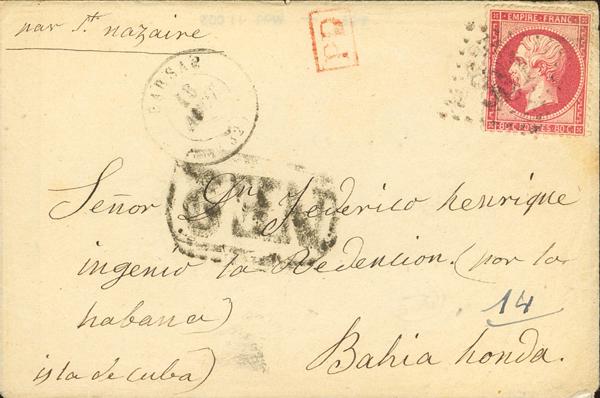 par St. nazaire
PD
EMPIRE FRANC
80 C POSTES 80 C
BARSAC
Señor Dn Federico Henrique
ingenio la Redencion. (por la
habana)
14
isla de cuba)
Bahia honda.